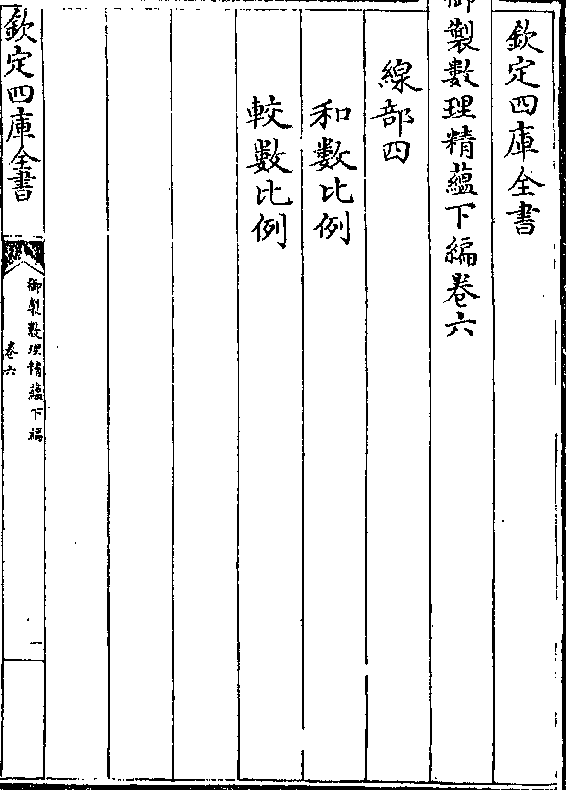 欽定四庫全書
御製數理精蘊下編卷六
線部四
和數比例
較數比例
欽定四庫全書
御製數理精蘊下編
卷六
一